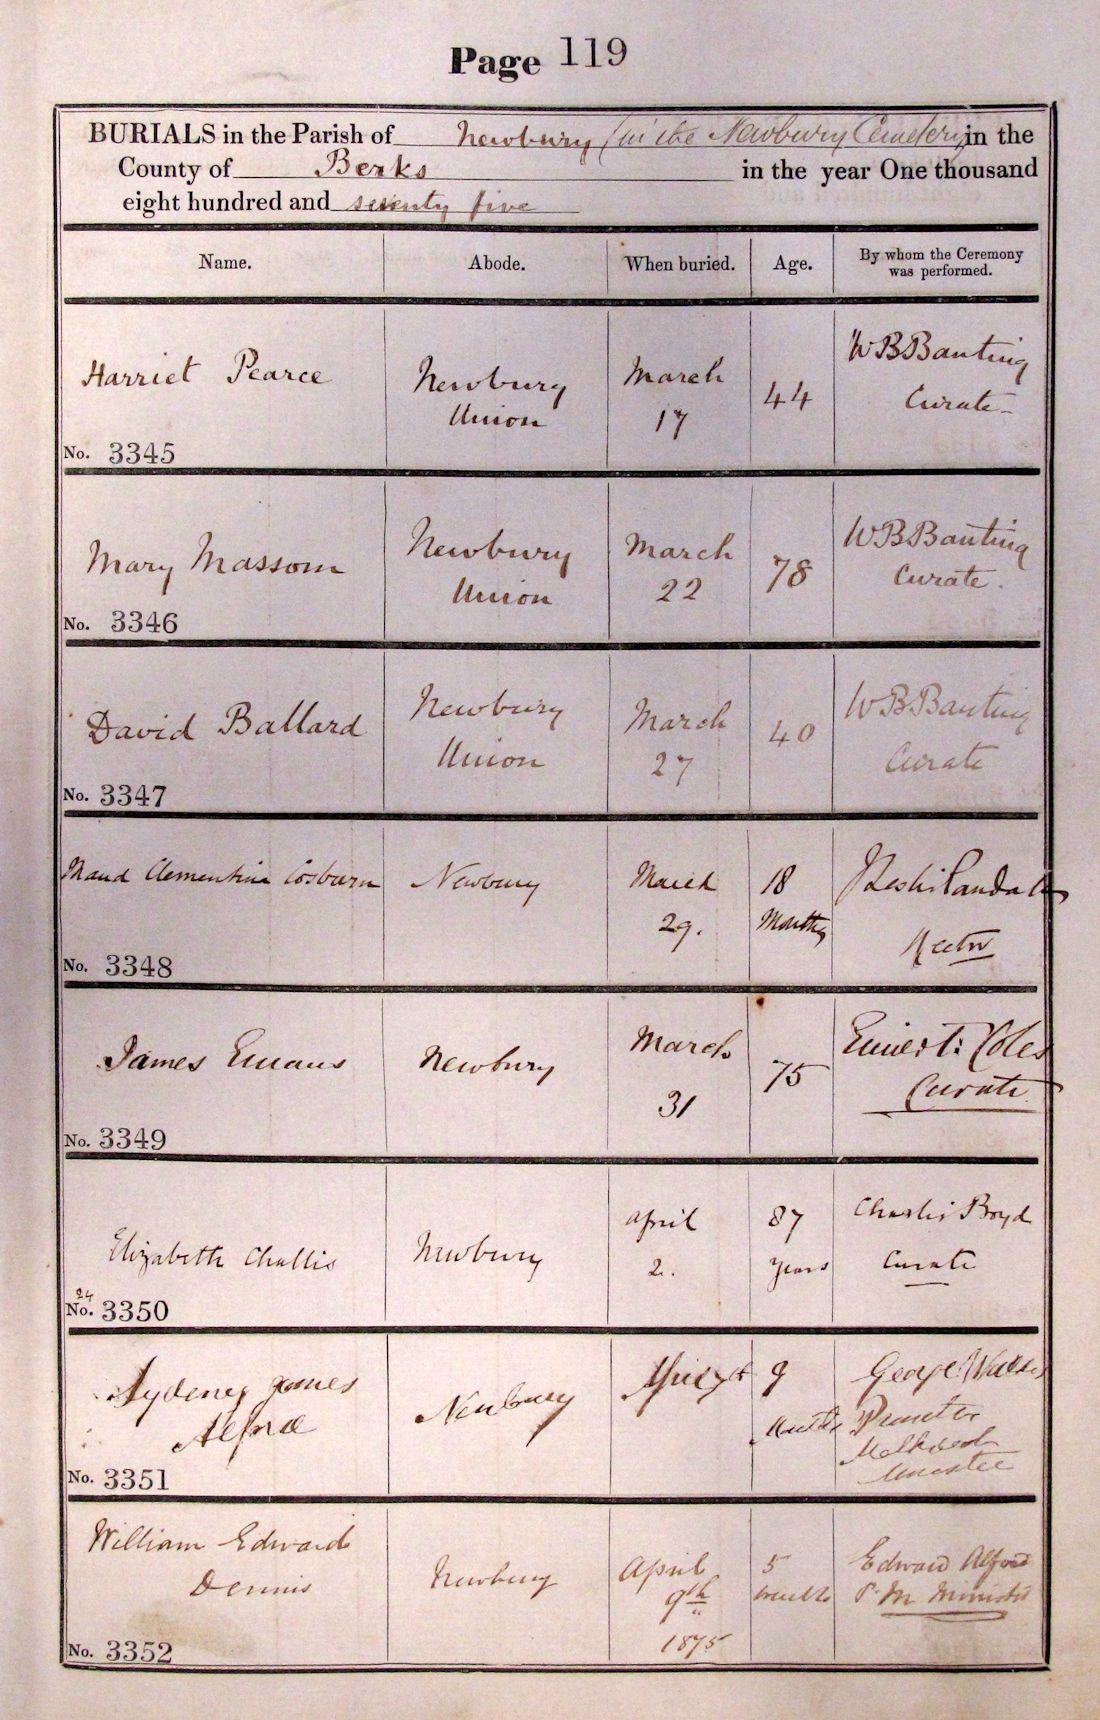 Page 119
BURIALS in the Parish of Newbury (in the Newbury Cemetery in the
County of Berks in the year One thousand
eight hundred and seventy five
Name. Abode. When buried. Age. By whom the Ceremony
was performed.
Harriet Pearce Newbury March 44 W B Banting
Union 17 Curate
No. 3345
Mary Massom Newbury March 78 W B Banting
Union 22 Curate.
No. 3346
David Ballard Newbury March 40 W B Banting
Union 27 Curate
No. 3347
Maud Clementina Cosburn Newbury March 18
29. Months Rector
No. 3348
James Emans Newbury March 75 Ernest Coles
31 Curate
No. 3349
Elizabeth Challis Newbury April 87 Charles Boyd
2. years Curate
24
No. 3350
Sydeney James Newbury 9 George
Months
Methodist
Minister
No. 3351
William Edward Newbury April 5 Edward Alford
Dennis 9th P. M Minister
1875
No. 3352